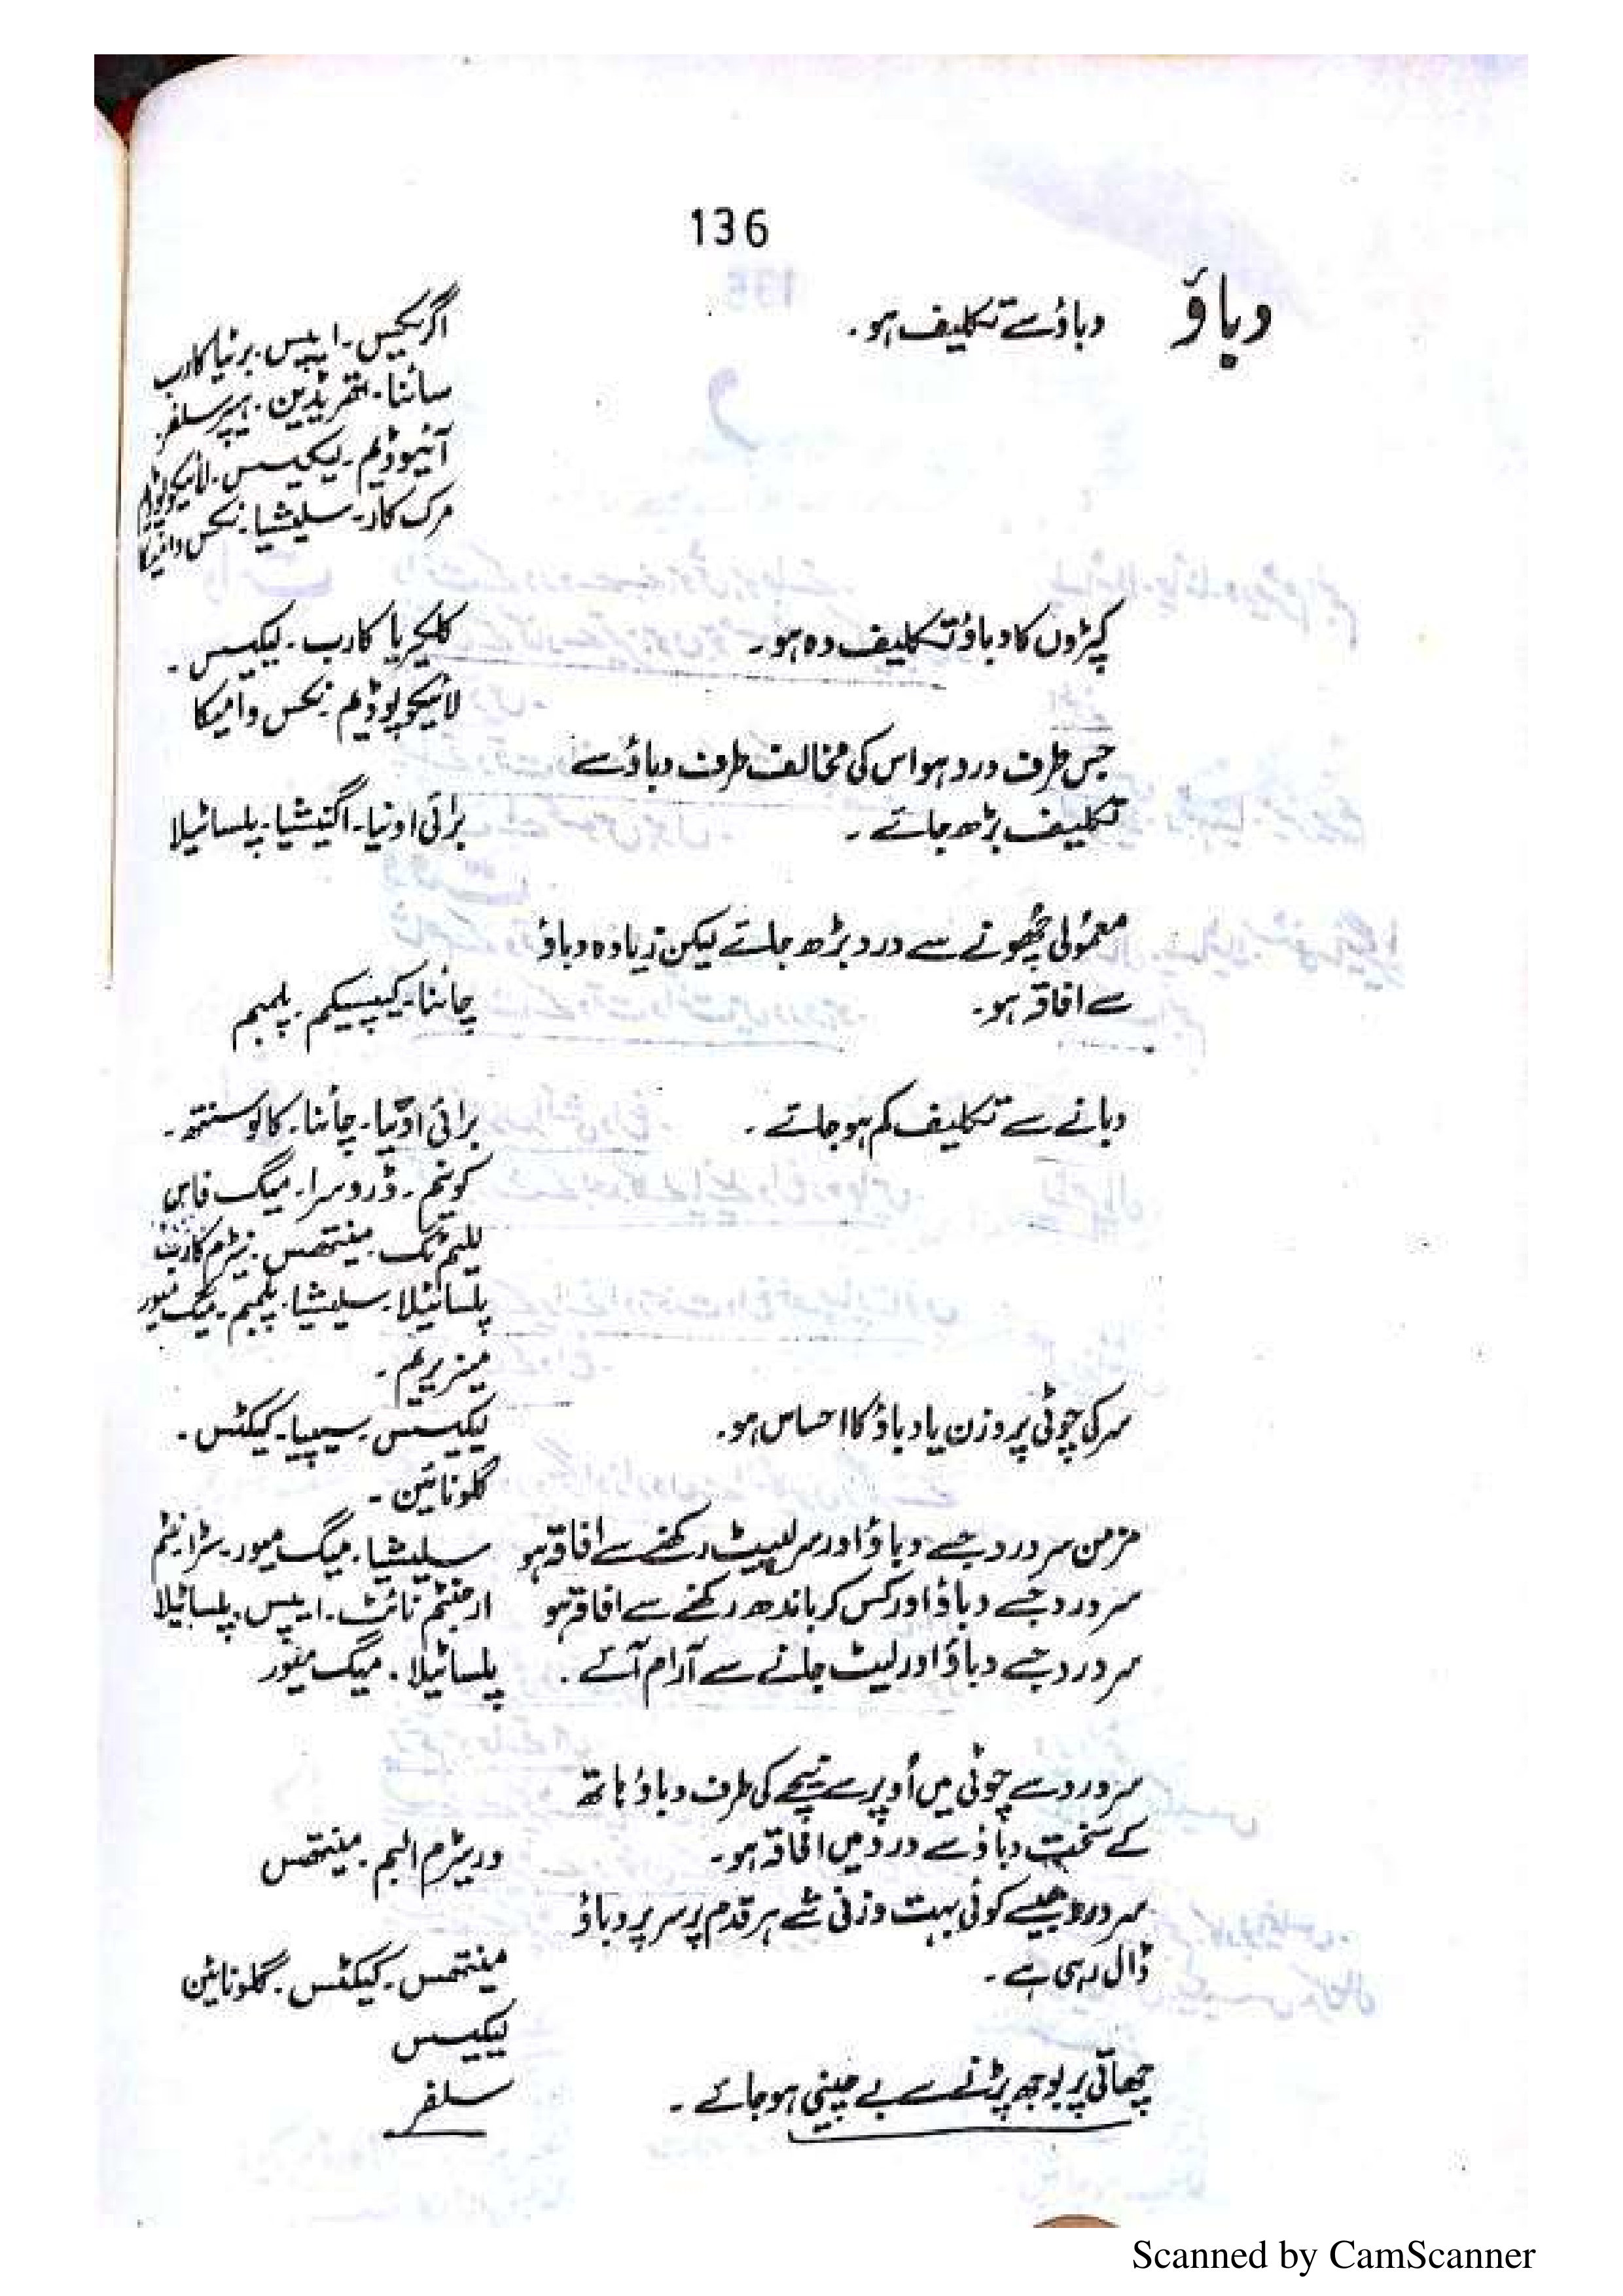 136
دباؤ
دباؤ سے تکلیف ہو۔
اگریکس۔ ایپس۔ برئیا کارب
سائنا۔ ہیپر سلفر
آئیوڈیم۔ لیکیسس۔ لائیکوپوڈیم
مرک کار۔ سلیشیا۔ نکس وامیکا
کپڑوں کا دباؤ تکلیف دہ ہو۔
کلکیریا کارب۔ لیکیسس۔
لائیکوپوڈیم۔ نکس وامیکا
جس طرف درد ہو اس کی مخالف طرف دباؤ سے
تکلیف بڑھ جائے۔
برائی اونیا۔ اگنیشیا۔ پلساٹیلا
معمولی چھونے سے درد بڑھ جائے لیکن زیادہ دباؤ
سے افاقہ ہو۔
چائنا۔ کیپسیکم۔ پلمبم
دبانے سے تکلیف کم ہو جائے۔
برائی اونیا۔ چائنا۔ کالوسنتھ۔
کونیم۔ ڈروسرا۔ میگ فاس
للیم ٹگ۔ مینتھس۔ نیٹرم کارب
پلساٹیلا۔ سلیشیا۔ پلمبم۔ میگ میور
میزیریم۔
سر کی چوٹی پر وزن یا دباؤ کا احساس ہو۔
لیکیسس۔ سیپیا۔ کیکٹس۔
گلونائین۔
مزمن سر درد جسے دباؤ اور سر لپیٹ رکھنے سے افاقہ ہو
سلیشیا۔ میگ میور۔ سٹرانیٹم
سر درد جسے دباؤ اور کس کر باندھ رکھنے سے افاقہ ہو
ارجنٹم نائٹ۔ ایپس۔ پلساٹیلا
سر درد جسے دباؤ اور لیٹ جانے سے آرام آئے۔
پلساٹیلا۔ میگ میور
سر درد سے چوٹی میں اُوپر سے نیچے کی طرف دباؤ ہاتھ
کے سخت دباؤ سے درد میں افاقہ ہو۔
وریٹرم البم۔ مینتھس
سر درد جیسے کوئی بہت وزنی شے ہر قدم پر سر پر دباؤ
ڈال رہی ہے۔
مینتھس۔ کیکٹس۔ گلونائین
لیکیسس
چھاتی پر بوجھ پڑنے سے بے چینی ہو جائے۔
سلفر
Scanned by CamScanner